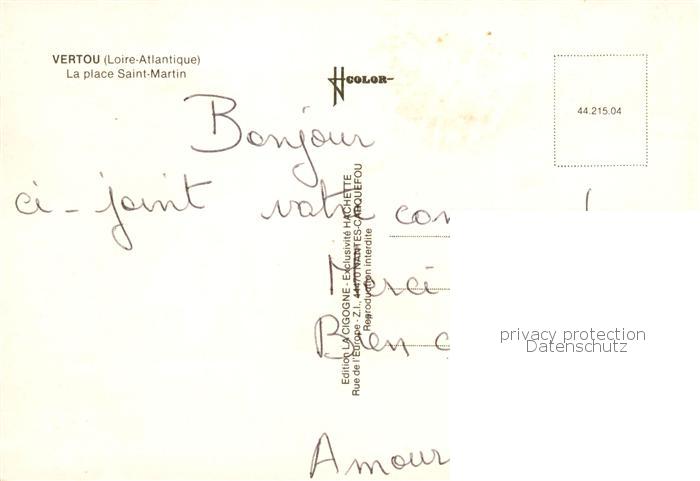 VERTOU (Loire-Atlantique)
La place Saint-Martin
COLOR
44.215.04
Bonjour
ci-joint votre
Merci
Bien
Amour
Edition LA CIGOGNE - Exclusivité HACHETTE
Rue de l'Europe - Z.I., 44470 NANTES-CARQUEFOU
Reproduction interdite
privacy protection
Datenschutz